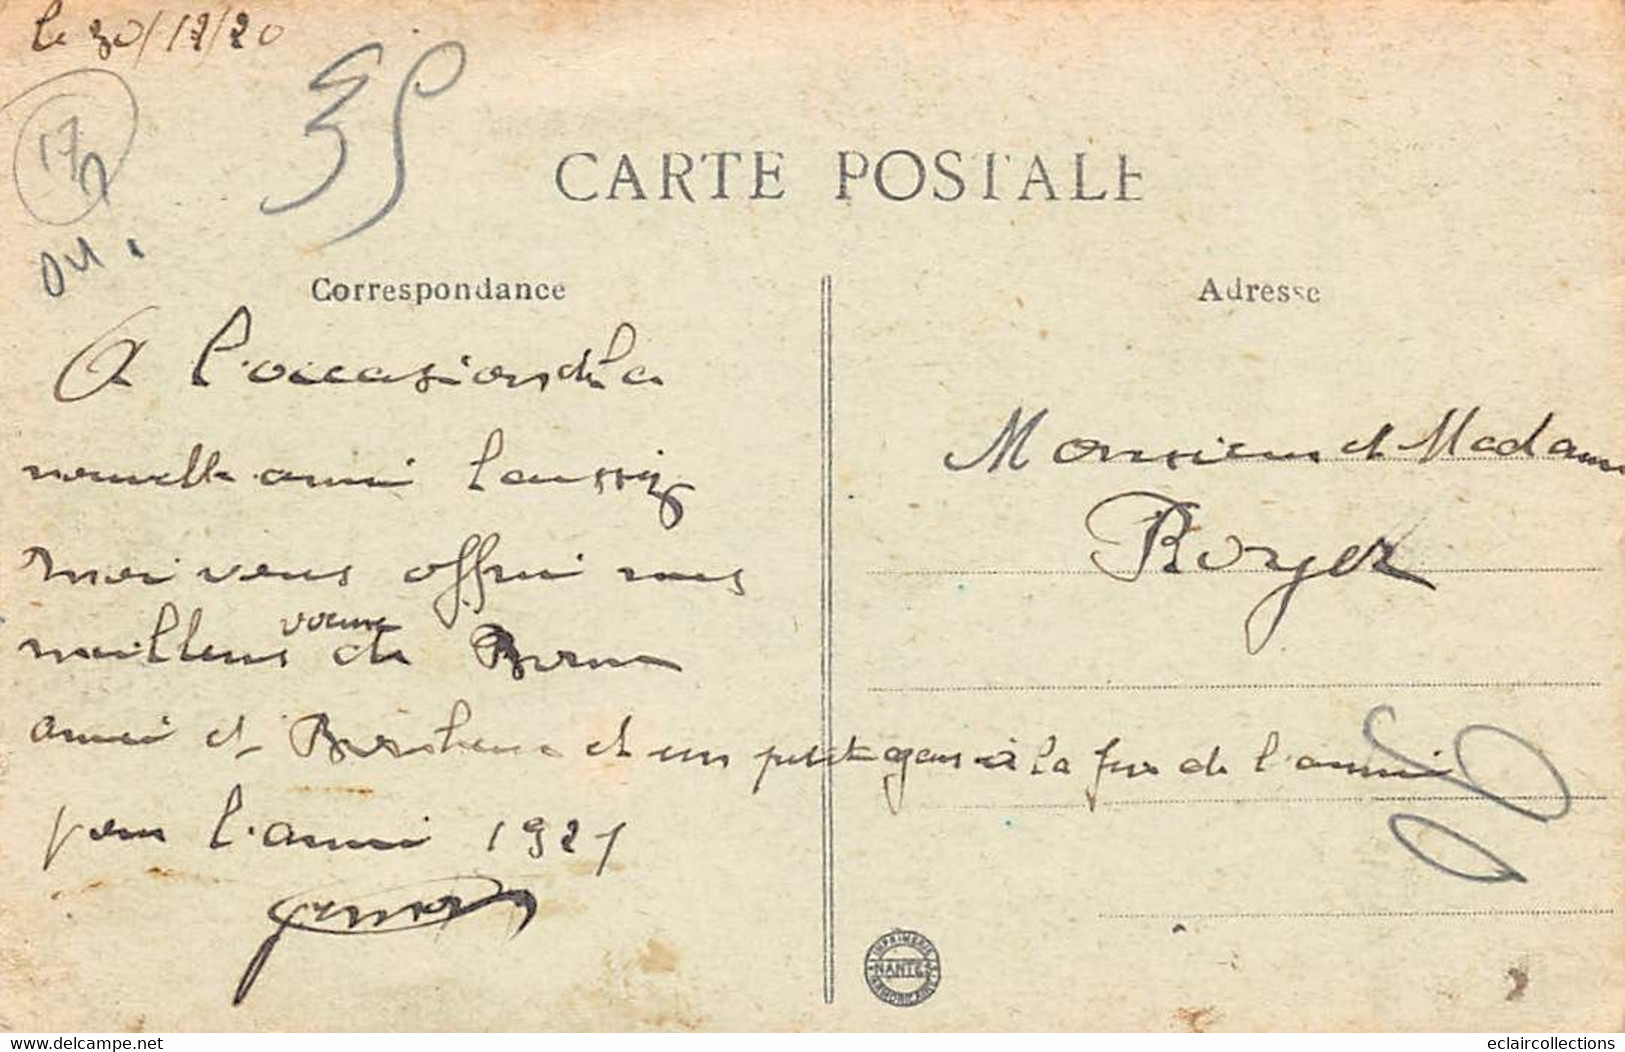 le 30/12/20
35
17
CARTE POSTALE
Correspondance
Adresse
A l'occasion de la
nouvelle anné laissez
moi vous offrir mes
meilleurs voeux de Bonne
anné et Bonheur et un petit gars à la fin de l'anné
pour l'anné 1921
Monsieur et Madame
Royer
IMPRIMERIE
NANTES
ARMORICAINE
eclaircollections